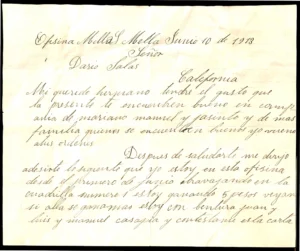 Ofisina Mella S Mella Junio 10 de 1918
Señor
Dario Salas
California
Mi querido hermano tendre el gusto que
la presente te encuentren bueno en compa
ania de mariano manuel y jasinto y de mas
familia quienes se encuentren buenos yo vueno
a tus ordenes
Despues de saludarte me dirijo
adesirte lo siguiente que yo estoy en esta ofisina
desde el primero de junio travajando en la
cuadrilla numero 1 estoy ganando 5 pesos
si alla se amoman estoy con bentura juan y
luis y manuel y contestame esta carta